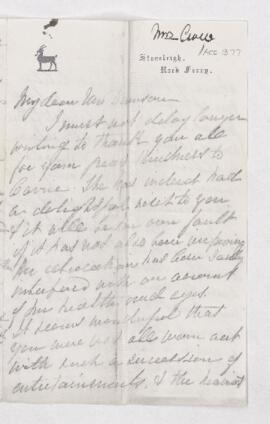 Mrs Crosse
Acc 377
Stoneleigh,
Rock Ferry.
My dear Mrs
I must not delay longer
writing to thank you all
for your great kindness to
Carrie. She has indeed had
a delightful visit to you
& it all be her own fault
if it has not also been improving
her education has been sadly
interfered with on account
of her health and eyes.
It seems wonderful that
you were not all worn out
with such a succession of
entertainments. & the